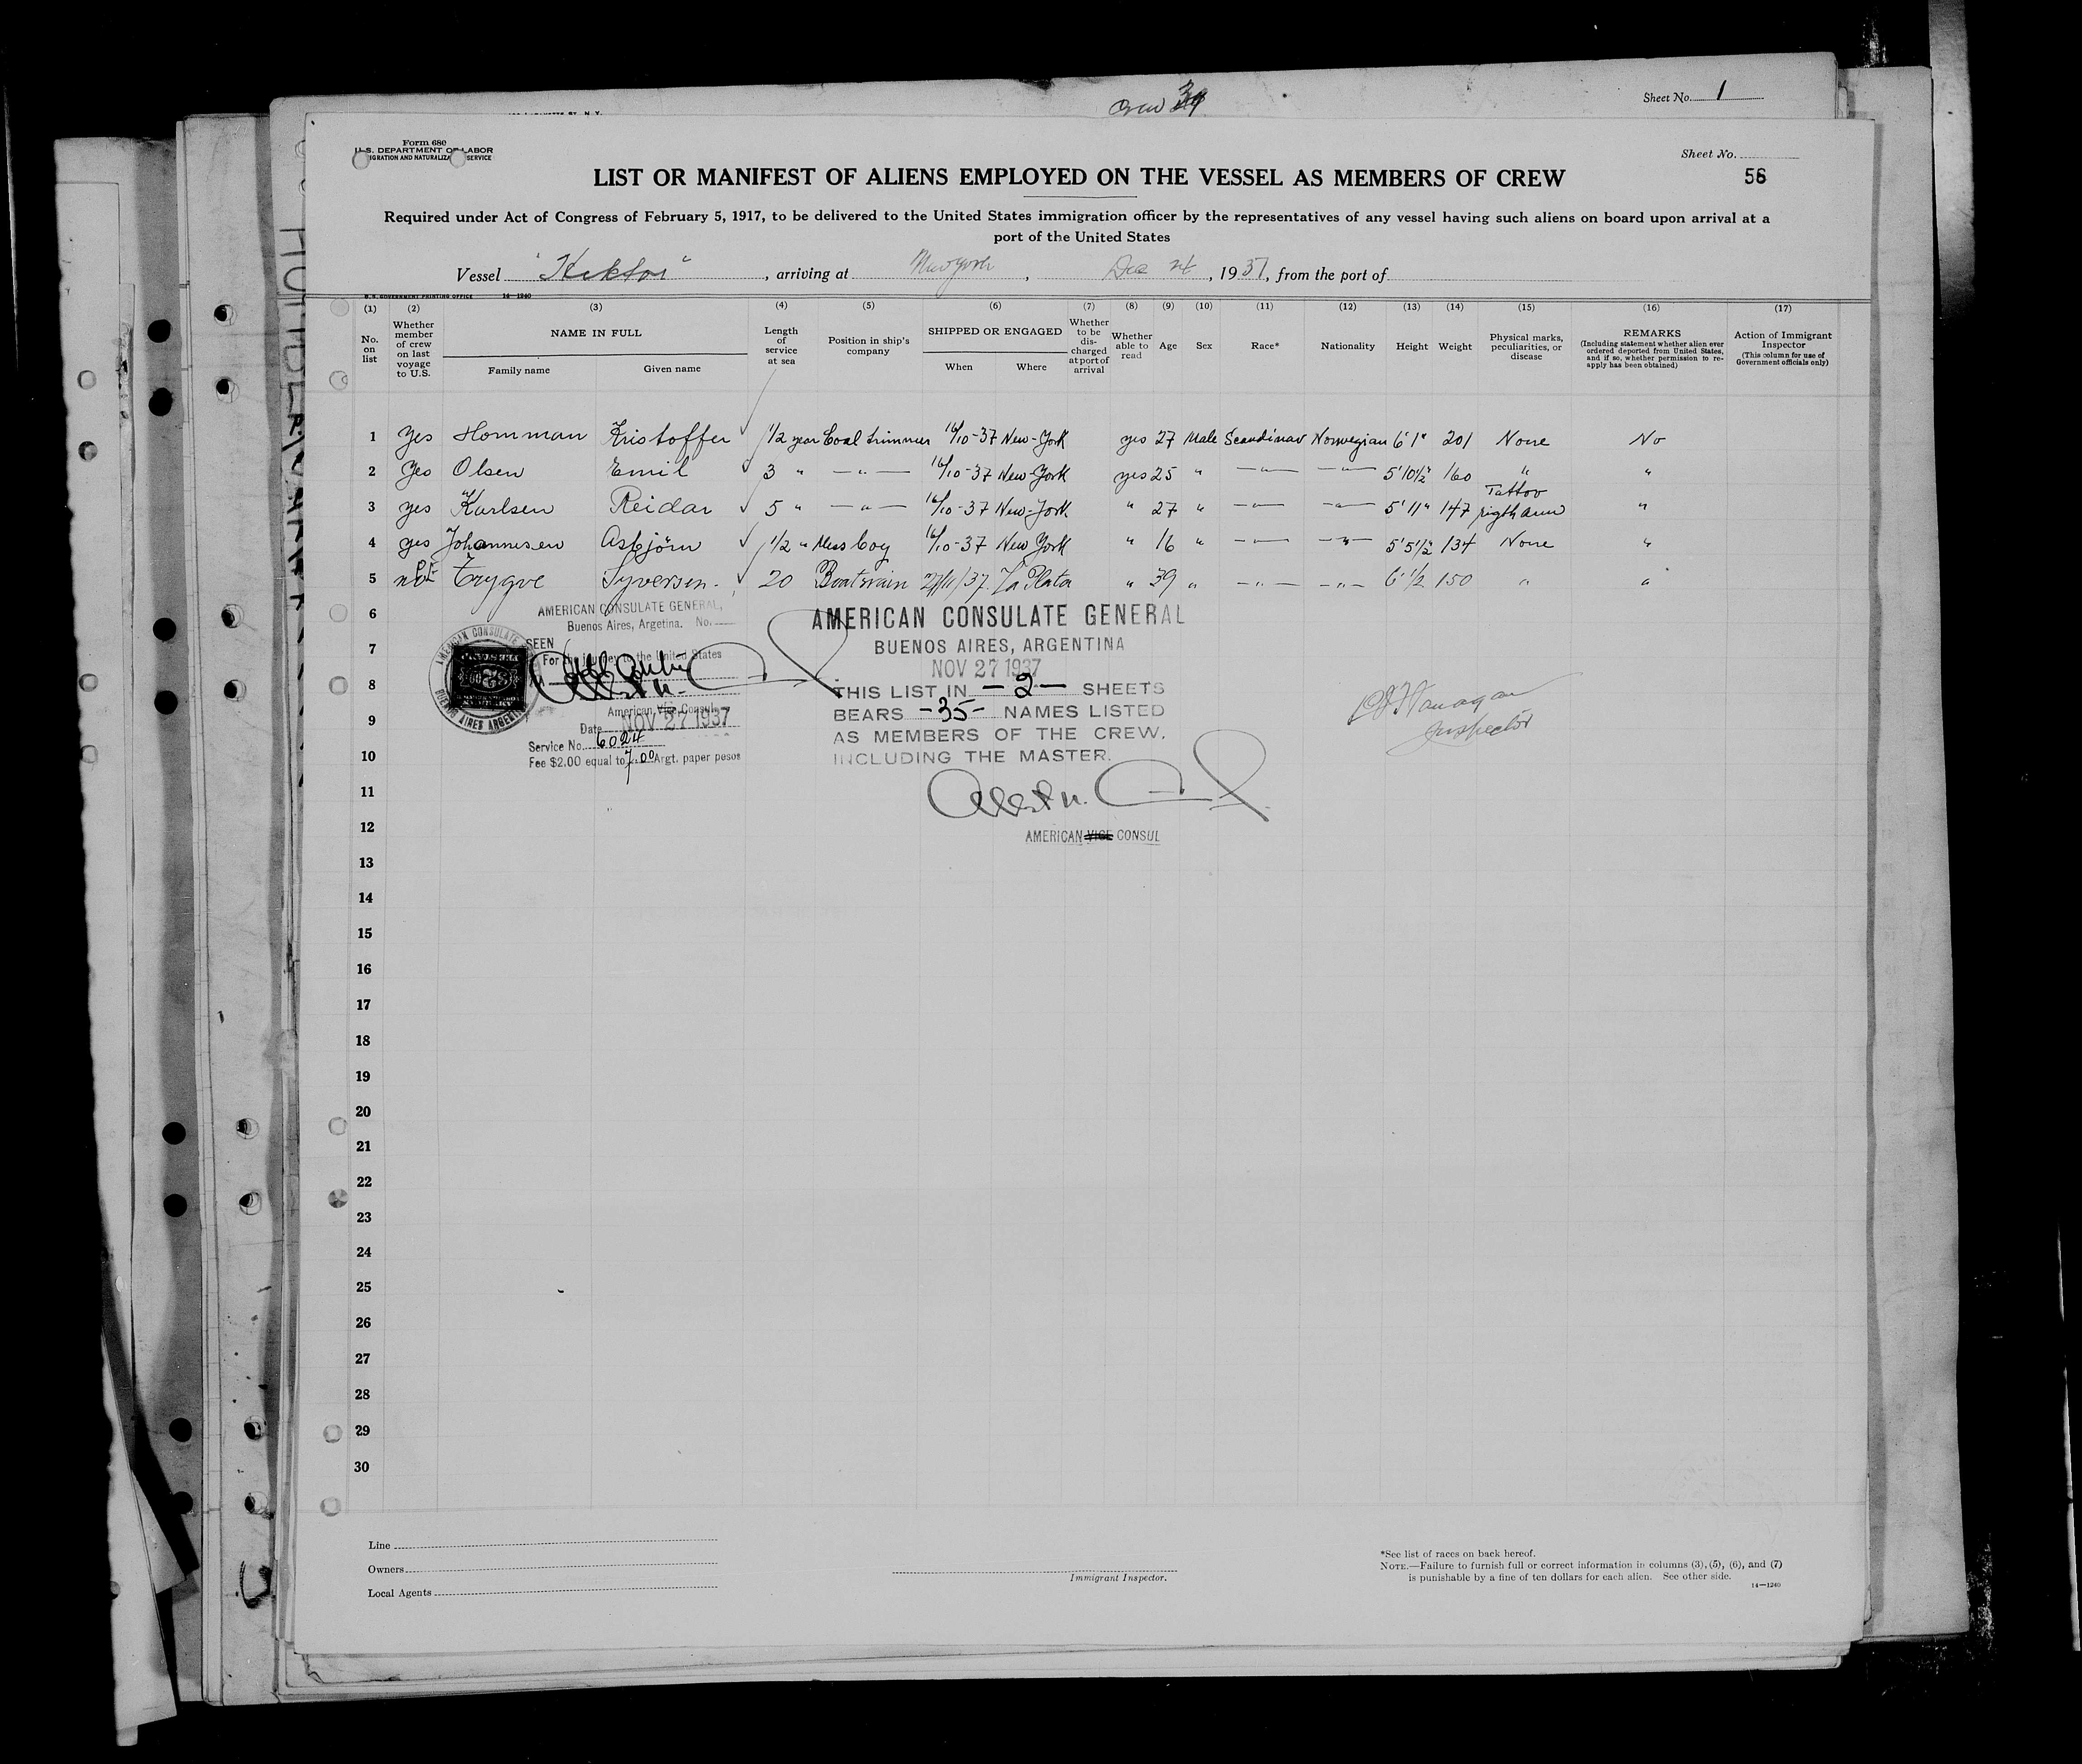 Crew
Sheet No. 1
Form 680
U.S. DEPARTMENT OF LABOR
IGRATION AND NATURALIZA SERVICE
Sheet No.
LIST OR MANIFEST OF ALIENS EMPLOYED ON THE VESSEL AS MEMBERS OF CREW
56
Required under Act of Congress of February 5, 1917, to be delivered to the United States immigration officer by the representatives of any vessel having such aliens on board upon arrival at a
port of the United States
Vessel , arriving at New York , Dec 24 , 1937, from the port of
U. S. GOVERNMENT PRINTING OFFICE 14—1240
(1) (2) (3) (4) (5) (6) (7) (8) (9) (10) (11) (12) (13) (14) (15) (16) (17)
No. on list
Whether member of crew on last voyage to U.S.
NAME IN FULL
Family name Given name
Length of service at sea
Position in ship's company
SHIPPED OR ENGAGED
When Where
Whether to be discharged at port of arrival
Whether able to read
Age
Sex
Race*
Nationality
Height
Weight
Physical marks, peculiarities, or disease
REMARKS
(Including statement whether alien ever ordered deported from United States, and if so, whether permission to re-apply has been obtained)
Action of Immigrant Inspector
(This column for use of Government officials only)
1 yes Homman Kristoffer 1/2 year Coal trimmer 16/10-37 New-York yes 27 Male Scandinav Norwegian 6' 1" 201 None No
2 Yes Olsen Emil 3 " —"— 16/10-37 New-York yes 25 " —"— —"— 5' 10 1/2" 160 " "
3 yes Karlsen Reidar 5 " —"— 16/10-37 New-York " 27 " —"— —"— 5' 11" 147 Tattov rigth arm "
4 yes Johannesen Asbjörn 1 1/2 " Mess boy 16/10-37 New York " 16 " —"— —"— 5' 5 1/2 134 None "
5 Trygve Syversen. 20 Boatswain 27/11/37. La Plata " 39 " —"— —"— 6' 1/2 150 " "
6
7
8
9
10
11
12
13
14
15
16
17
18
19
20
21
22
23
24
25
26
27
28
29
30
AMERICAN CONSULATE GENERAL,
Buenos Aires, Argetina. No.
SEEN
For the journey to the United States
American Vice Consul
Date NOV 27 1937
Service No. 6024
Fee $2.00 equal to 7.00 Argt. paper pesos
AMERICAN CONSULATE
BUENOS AIRES ARGENTINA
AMERICAN CONSULATE GENERAL
BUENOS AIRES, ARGENTINA
NOV 27 1937
THIS LIST IN —2— SHEETS
BEARS -35- NAMES LISTED
AS MEMBERS OF THE CREW,
INCLUDING THE MASTER.
AMERICAN VICE CONSUL
Inspector
Line
Owners
Local Agents
Immigrant Inspector.
*See list of races on back hereof.
NOTE.—Failure to furnish full or correct information in columns (3), (5), (6), and (7)
is punishable by a fine of ten dollars for each alien. See other side.
14—1240